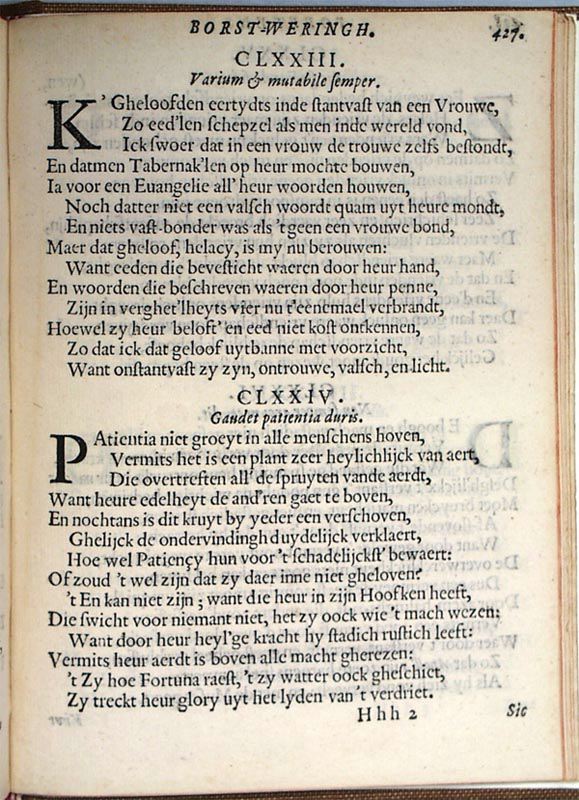 BORST-WERINGH. 427.
CLXXIII.
Varium & mutabile semper.
K' Gheloofden eertydts inde stantvast van een Vrouwe,
Zo eed'len schepzel als men inde wereld vond,
Ick swoer dat in een vrouw de trouwe zelfs bestondt,
En datmen Tabernak'len op heur mochte bouwen,
Ia voor een Euangelie all' heur woorden houwen,
Noch datter niet een valsch woordt quam uyt heure mondt,
En niets vast-bonder was als 't geen een vrouwe bond,
Maer dat gheloof, helacy, is my nu berouwen:
Want eeden die bevesticht waeren door heur hand,
En woorden die beschreven waeren door heur penne,
Zijn in verghet'lheyts vier nu t'eenemael verbrandt,
Hoewel zy heur beloft' en eed niet kost ontkennen,
Zo dat ick dat geloof uytbanne met voorzicht,
Want onstantvast zy zyn, ontrouwe, valsch, en licht.
CLXXIV.
Gaudet patientia duris.
PAtientia niet groeyt in alle menschens hoven,
Vermits het is een plant zeer heylichlijck van aert,
Die overtresten all' de spruyten vande aerdt,
Want heure edelheyt de and'ren gaet te boven,
En nochtans is dit kruyt by yeder een verschoven,
Ghelijck de ondervindingh duydelijck verklaert,
Hoe wel Patiençy hun voor 't schadelijckst' bewaert:
Of zoud 't wel zijn dat zy daer inne niet gheloven?
't En kan niet zijn; want die heur in zijn Hoofken heeft,
Die swicht voor niemant niet, het zy oock wie 't mach wezen;
Want door heur heyl'ge kracht hy stadich rustich leeft:
Vermits heur aerdt is boven alle macht gherezen:
't Zy hoe Fortuna raest, 't zy watter oock gheschiet,
Zy treckt heur glory uyt het lyden van 't verdriet.
Hhh 2 Sic